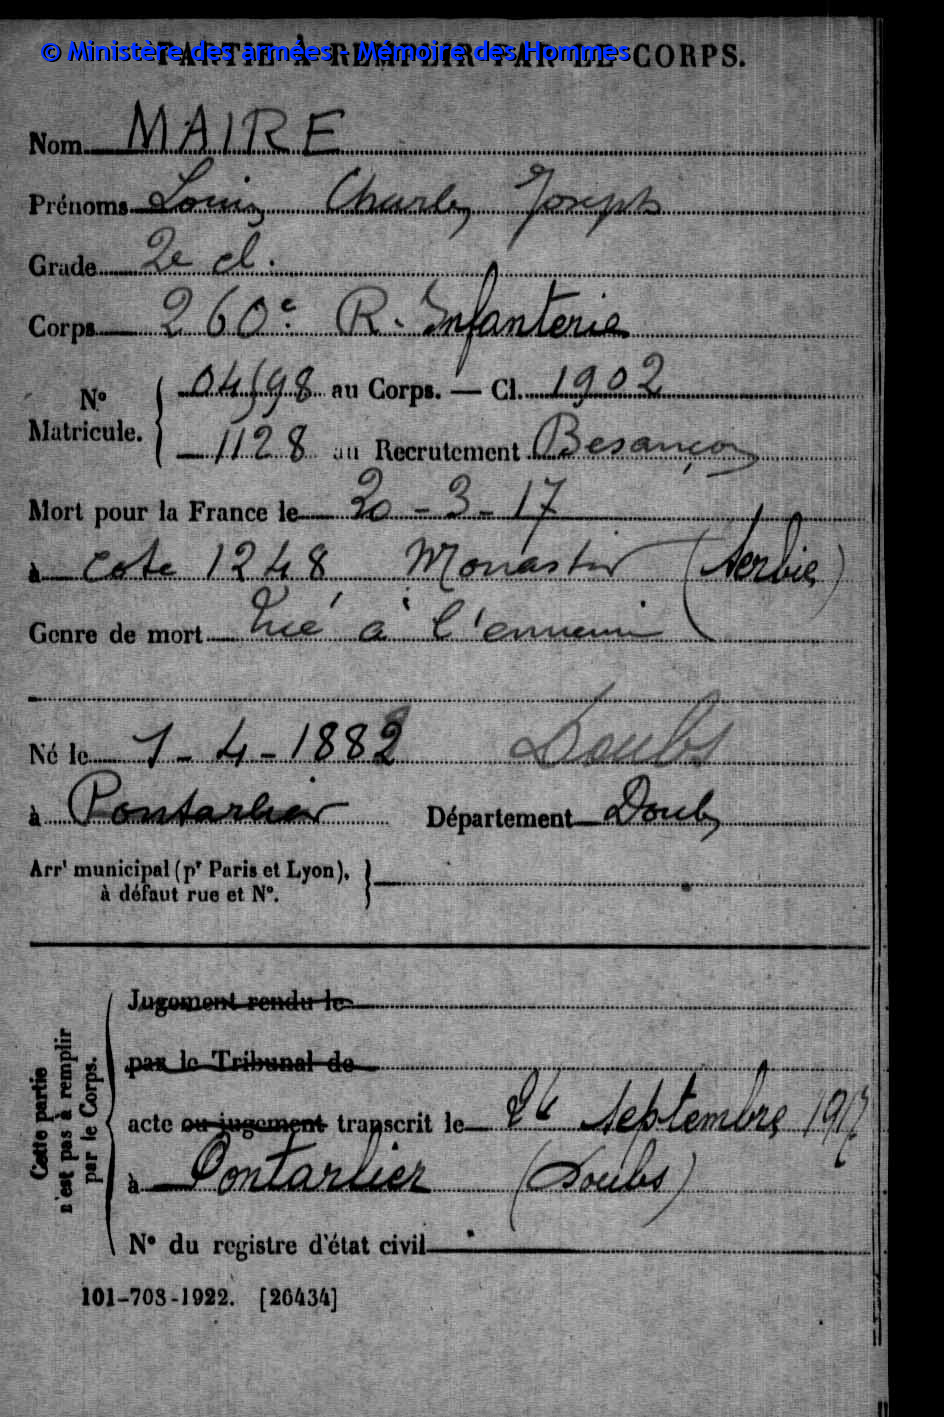 © Ministère des armées - Mémoire des Hommes
PARTIE À REMPLIR PAR LE CORPS.
Nom MAIRE
Prénoms Louis Charles Joseph
Grade 2e cl.
Corps 260e R. Infanterie
N° Matricule. 04598 au Corps. — Cl. 1902
1128 au Recrutement Besançon
Mort pour la France le 20-3-17
à cote 1248 Monastir (Serbie)
Genre de mort Tué à l'ennemi
Né le 1-4-1882 Doubs
à Pontarlier Département Doubs
Arrt municipal (pr Paris et Lyon), à défaut rue et N°.
Cette partie n'est pas à remplir par le Corps.
Jugement rendu le
par le Tribunal de
acte ou jugement transcrit le 26 Septembre 1917
à Pontarlier (Doubs)
N° du registre d'état civil
101-708-1922. [26434]